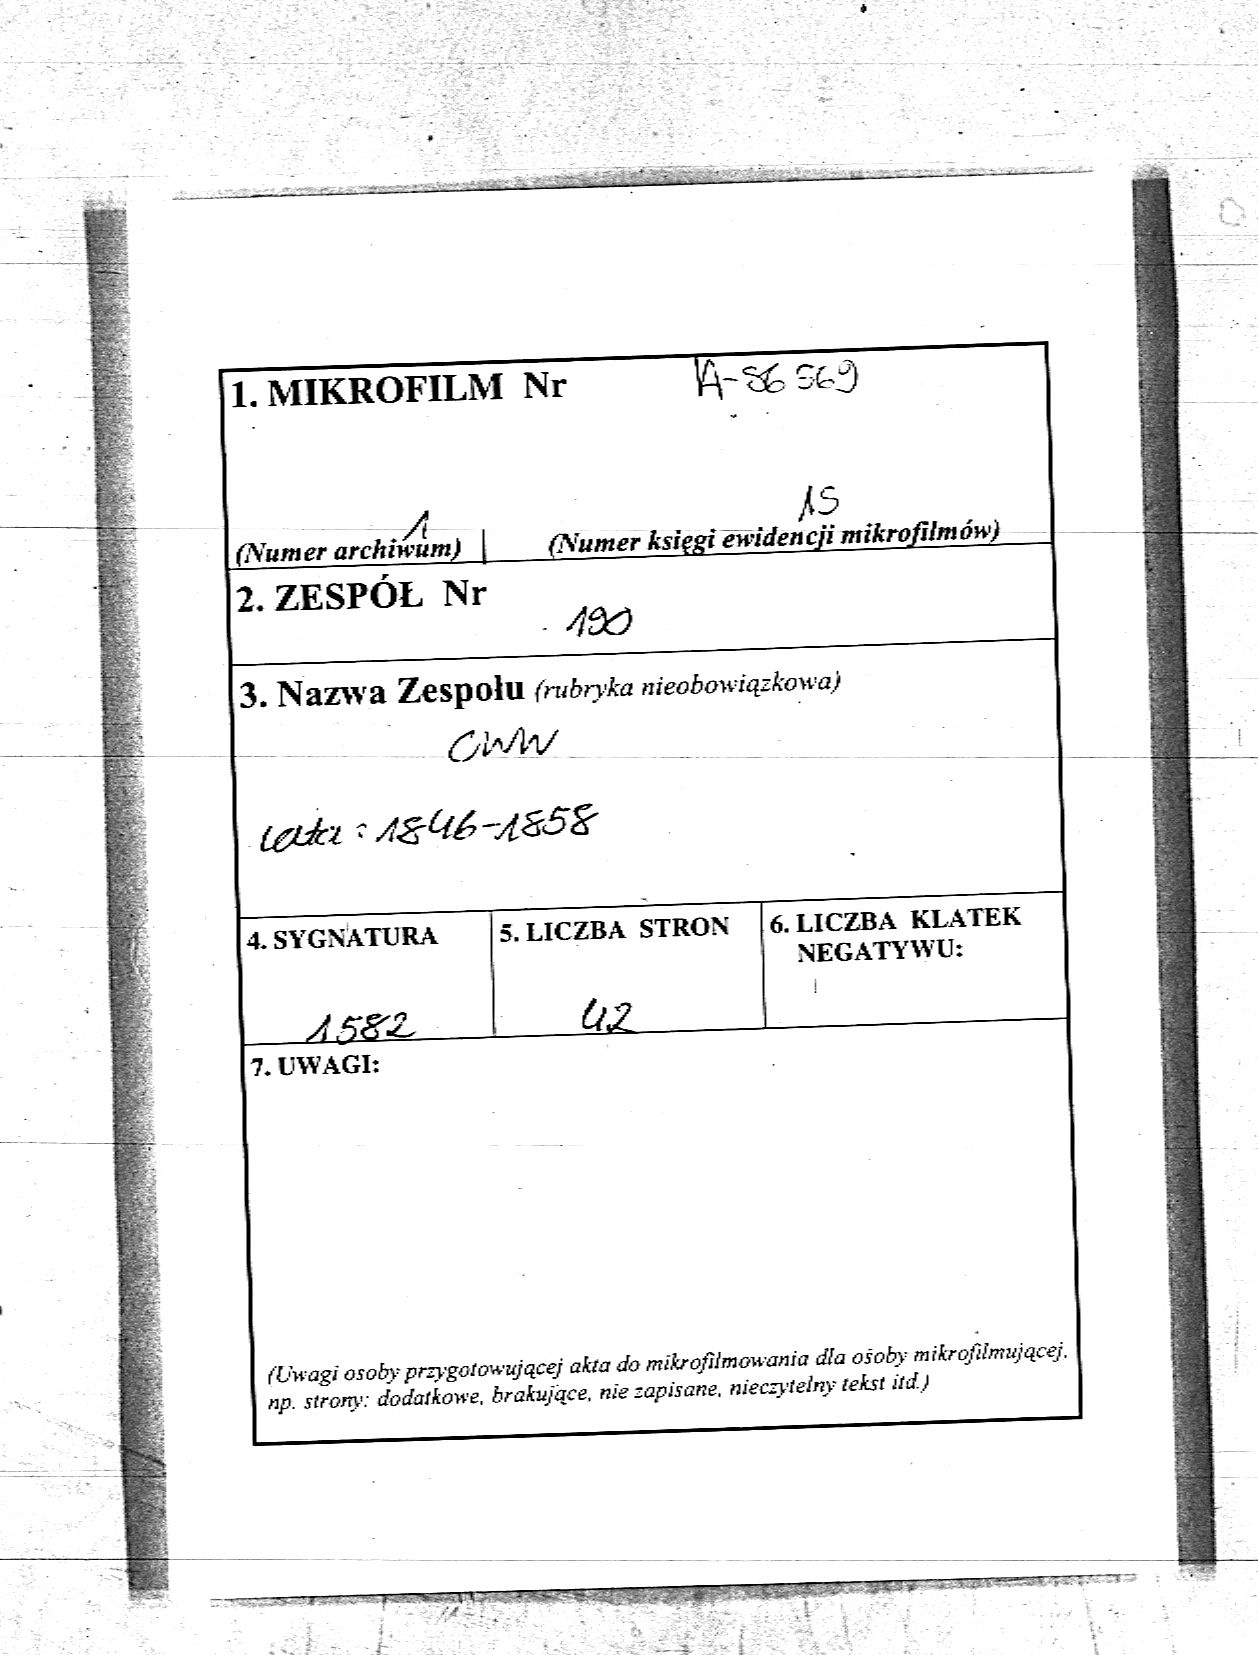 1. MIKROFILM Nr A-86569
1 15
(Numer archiwum) (Numer księgi ewidencji mikrofilmów)
2. ZESPÓŁ Nr
190
3. Nazwa Zespołu (rubryka nieobowiązkowa)
CWW
Lata: 1846-1858
4. SYGNATURA 5. LICZBA STRON 6. LICZBA KLATEK
NEGATYWU:
1582 42
7. UWAGI:
(Uwagi osoby przygotowującej akta do mikrofilmowania dla osoby mikrofilmującej,
np. strony: dodatkowe, brakujące, nie zapisane, nieczytelny tekst itd.)